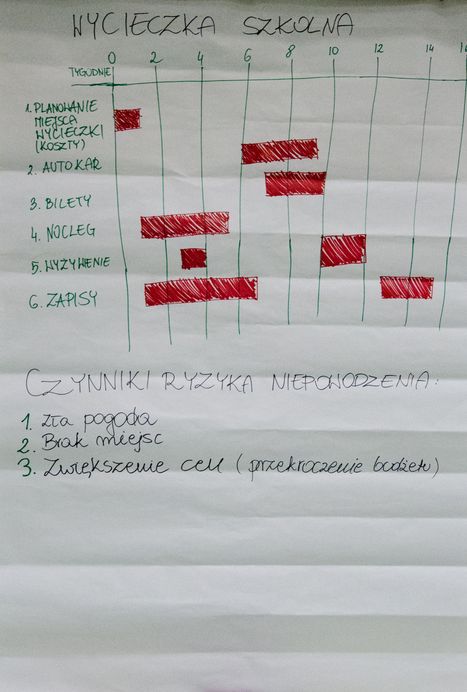 WYCIECZKA SZKOLNA
0 2 4 6 8 10 12 14 16
TYGODNIE
1. PLANOWANIE
MIEJSCA
WYCIECZKI
(KOSZTY)
2. AUTOKAR
3. BILETY
4. NOCLEG
5. WYŻYWIENIE
6. ZAPISY
CZYNNIKI RYZYKA NIEPOWODZENIA:
1. Zła pogoda
2. Brak miejsc
3. Zwiększenie cen (przekroczenie budżetu)